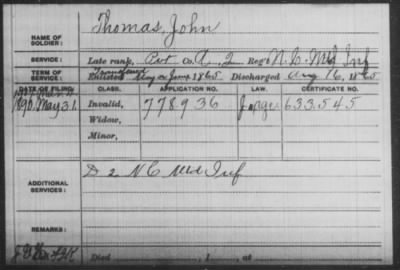 NAME OF SOLDIER: Thomas, John
SERVICE: Late rank, Pvt Co. A, 2 Reg't N.C. Mtd Inf
TERM OF SERVICE: Enlisted May or June, 1865 Discharged Aug 16, 1865
DATE OF FILING. CLASS. APPLICATION NO. LAW. CERTIFICATE NO.
1890 May 31. Invalid, 778936 633.545
Widow,
Minor,
ADDITIONAL SERVICES: D 2 N C Mtd Inf
REMARKS:
Died , 1 , at